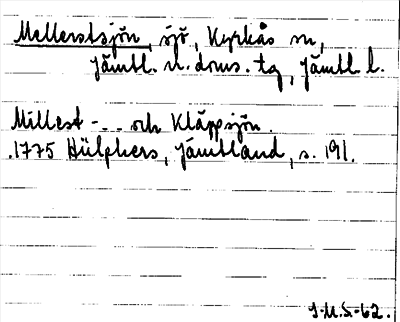 Mellerstsjön, sjö, Kyrkås sn,
Jämtl. n. doms. tg, Jämtl. l.
Millest - - - och Kläppsjön.
1775 Hülphers, Jämtland, s. 191.
J.M.S.-62.